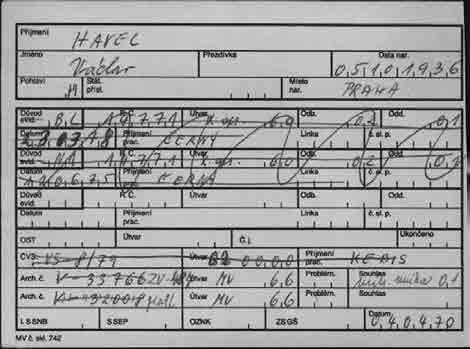 Příjmení HAVEL
Jméno Václav Přezdívka Data nar. 05101936
Pohlaví M Stát. přísl. Místo nar. PRAHA
Důvod evid. BL R.Č. 19771 Útvar 60 Odb. 02 Odd. 01
Datum Příjmení prac. ČERNÝ Linka č. sl. p.
Důvod evid. NA R.Č. Útvar 60 Odb. 02 Odd.
Datum 120675 Příjmení prac. ČERNÁ Linka č. sl. p.
Důvod evid. R.Č. Útvar Odb. Odd.
Datum Příjmení prac. Linka č. sl. p.
OST Útvar Č.j. Ukončeno
ČVS: VS-8/79 Útvar 0000 Příjmení prac. KEBIS
Arch. č. V-33766 Útvar MV 66 Problém. Souhlas 01
Arch. č. Útvar MV 66 Problém. Souhlas
I. S SNB S SEP OZNK ZS GŠ Datum 040470
MV č. skl. 742